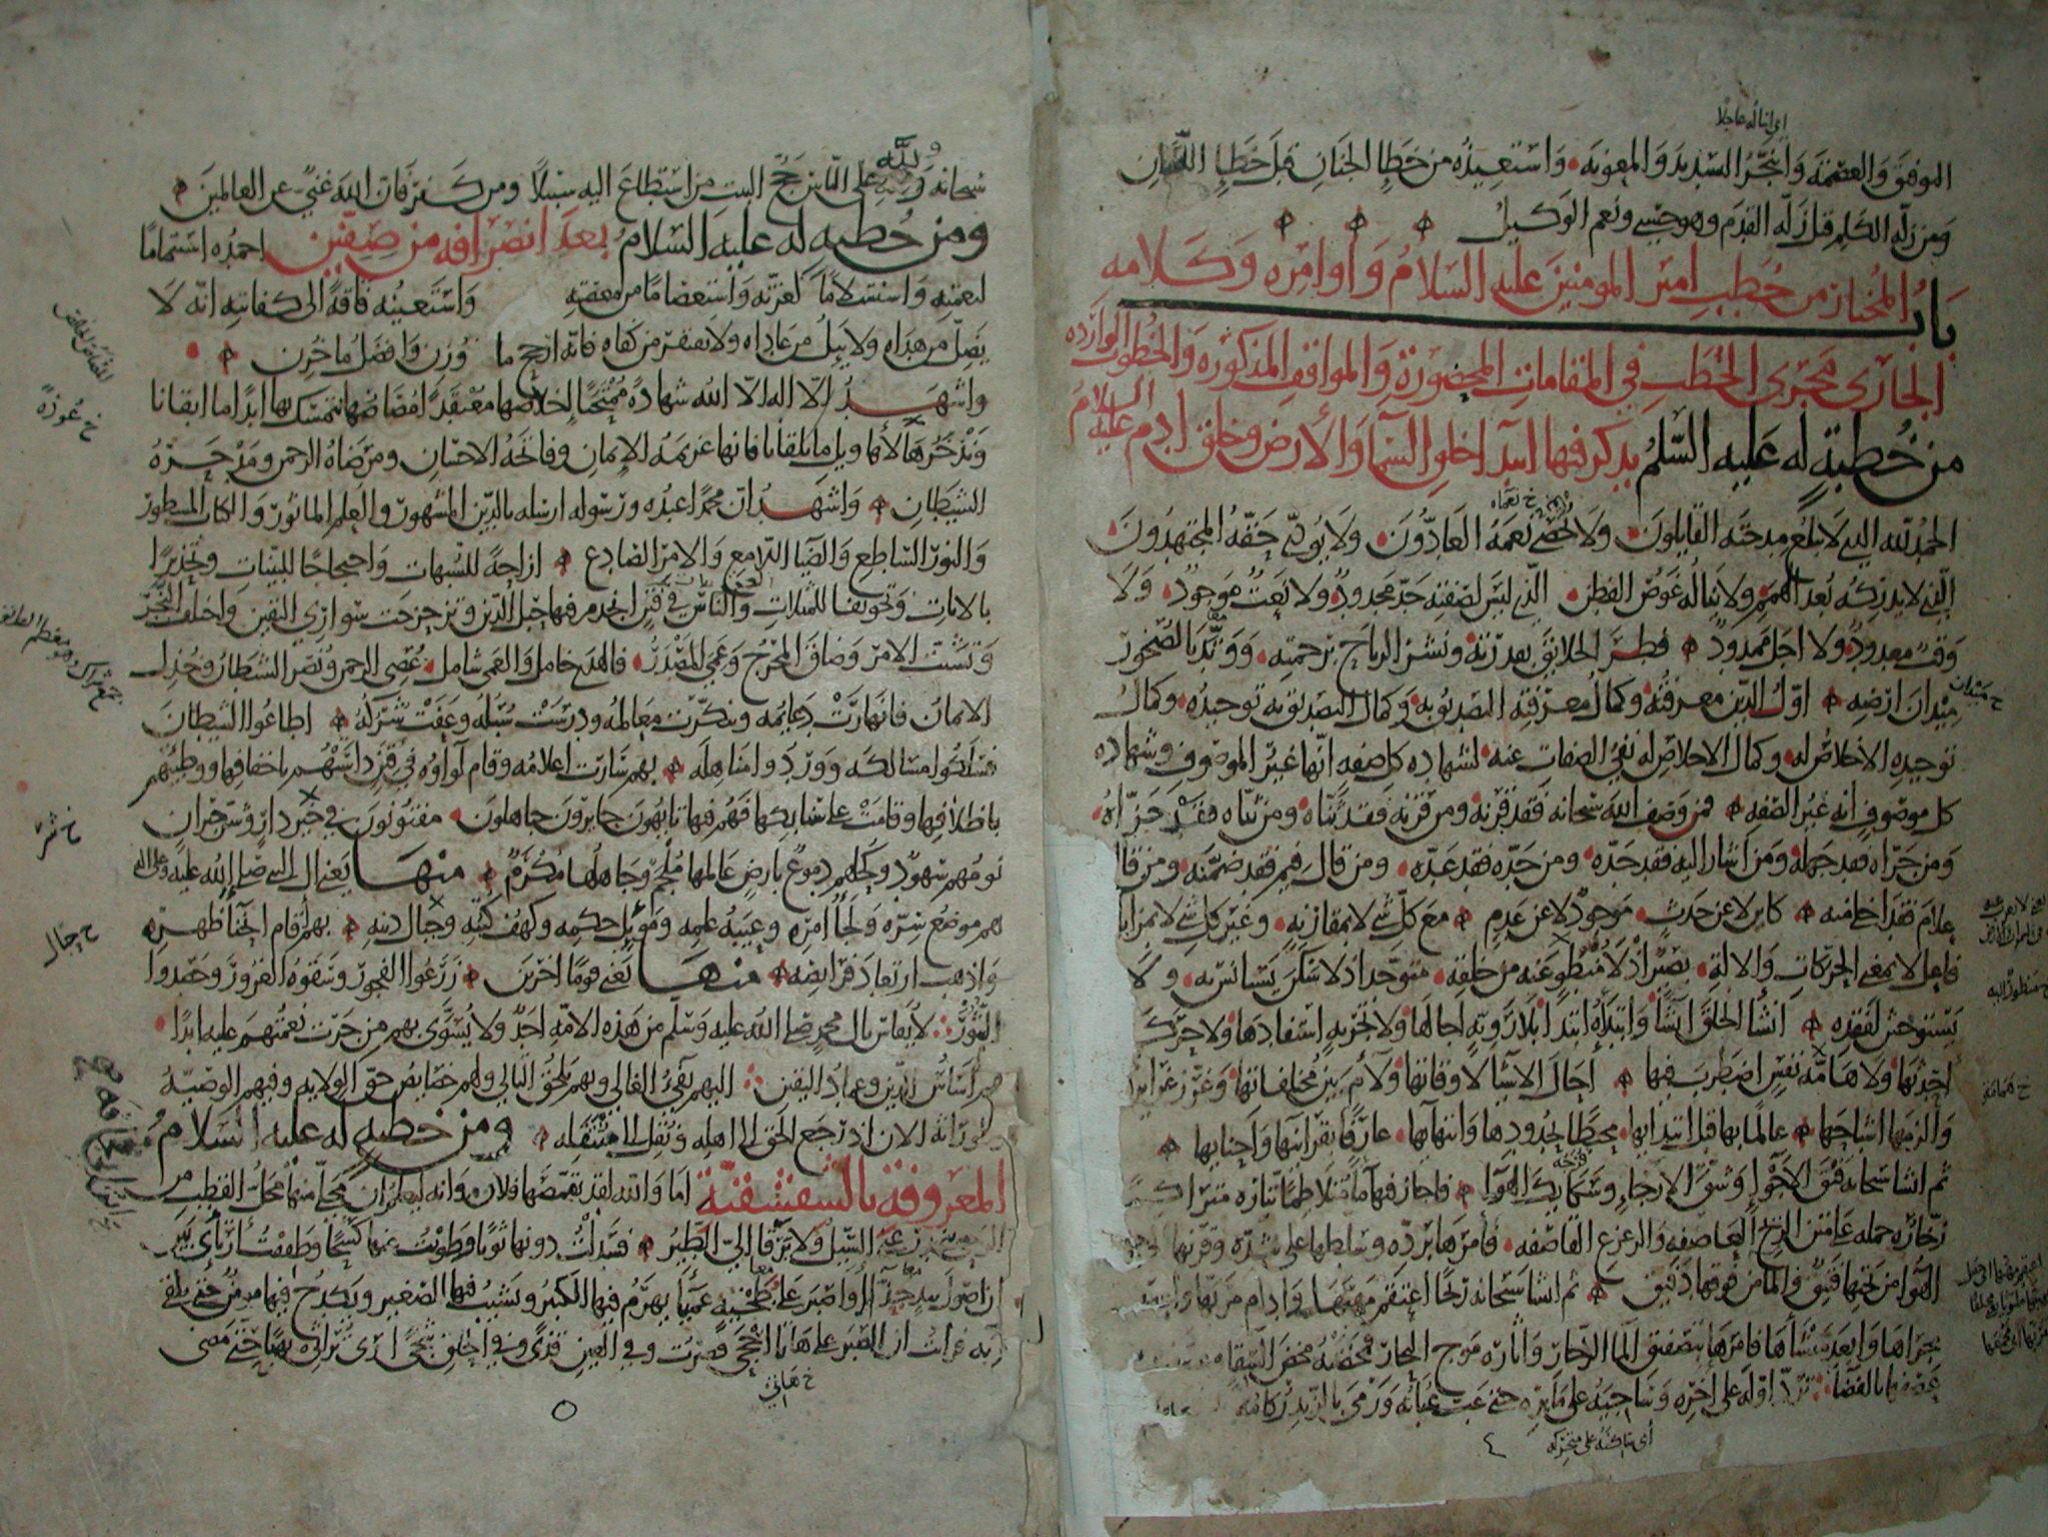 اي اناله عاجلا
التوفيق والعصمة واتنجز التسديد والمعونة واستعيذه من خطا الجنان قبل خطا اللسان
ومن زلة الكلم قبل زلة القدم وهو حسبي ونعم الوكيل
باب المختار من خطب امير المومنين عليه السلام واوامره وكلامه
الجاري مجرى الخطب في المقامات المحضورة والمواقف المذكورة والخطوب الواردة
من خطبة له عليه السلم يذكر فيها ابتدا خلق السما والارض وخلق ادم عليه السلام
خ نعماه
الحمد لله الذي لا يبلغ مدحته القايلون ولا يحصي نعمه العادون ولا يودي حقه المجتهدون
الذي لا يدركه بعد الهمم ولا يناله غوص الفطن الذي ليس لصفته حد محدود ولا نعت موجود ولا
وقت معدود ولا اجل ممدود فطر الخلايق بقدرته ونشر الرياح برحمته ووتد بالصخور
ميدان ارضه اول الدين معرفته وكمال معرفته التصديق به وكمال التصديق به توحيده وكمال
توحيده الاخلاص له وكمال الاخلاص له نفي الصفات عنه لشهادة كل صفة انها غير الموصوف وشهادة
كل موصوف انه غير الصفة فمن وصف الله سبحانه فقد قرنه ومن قرنه فقد ثناه ومن ثناه فقد جزاه
ومن جزاه فقد جهله ومن اشار اليه فقد حده ومن حده فقد عده ومن قال فيم فقد ضمنه ومن قال
علام فقد اخلا منه كاين لا عن حدث موجود لا عن عدم مع كل شي لا بمقارنة وغير كل شي لا بمزايلة
فاعل لا بمعنى الحركات والالة بصير اذ لا منظور عنه من خلقه متوحد اذ لا سكن يستانس به ولا
يستوحش لفقده انشا الخلق انشا وابتداه ابتدا بلا روية اجالها ولا تجربة استفادها ولا حركة
احدثها ولا همامة نفس اضطرب فيها احال الاشيا لاوقاتها ولام بين مختلفاتها وغرز غرايزها
والزمها اشباحها عالما بها قبل ابتدايها محيطا بحدودها وانتهايها عارفا بقراينها واحنايها
ثم انشا سبحانه فتق الاجوا وشق الارجا وسكايك الهوا فاجاز فيها ما متلاطما تياره متراكما
زخاره حمله على متن الريح العاصفة والزعزع القاصفة فامرها برده وسلطها على شده وقرنها
الهوا من تحتها فتيق والما من فوقها دفيق ثم انشا سبحانه ريحا اعتقم مهبها وادام مربها
مجراها وابعد منشاها فامرها بتصفيق الما الزخار واثارة موج البحار فمخضته مخض السقا
عصفها بالفضا ترد اوله على اخره وساجيه على مايره حتى عب عبابه ورمى بالزبد ركامه
اي ساكنه على متحركه
٤
خ ميدان
خ منظور اليه
سبحانه ولله على الناس حج البيت من استطاع اليه سبيلا ومن كفر فان الله غني عن العالمين
ومن خطبة له عليه السلام بعد انصرافه من صفين احمده استتماما
لنعمته واستسلاما لعزته واستعصاما من معصيته واستعينه فاقة الى كفايته انه لا
يضل من هداه ولا يئل من عاداه ولا يفتقر من كفاه فانه ارجح ما وزن وافضل ما خزن
واشهد الا اله الا الله شهادة ممتحنا اخلاصها معتقدا مصاصها نتمسك بها ابدا ما ابقانا
وندخرها لاهاويل ما يلقانا فانها عزيمة الايمان وفاتحة الاحسان ومرضاة الرحمن ومدحرة
الشيطان واشهد ان محمدا عبده ورسوله ارسله بالدين المشهور والعلم الماثور والكتاب المسطور
والنور الساطع والضيا اللامع والامر الصادع ازاحة للشبهات واحتجاجا للبينات وتحذيرا
بالايات وتخويفا للمثلات والناس في فتن انجذم فيها حبل الدين وتزعزعت سواري اليقين واختلف النجر
وتشتت الامر وضاق المخرج وعمي المصدر فالهدى خامل والعمى شامل عصي الرحمن ونصر الشيطان وخذل
الايمان فانهارت دعايمه وتنكرت معالمه ودرست سبله وعفت شركه اطاعوا الشيطان
فسلكوا مسالكه ووردوا مناهله بهم سارت اعلامه وقام لواوه في فتن داستهم باخفافها ووطيتهم
باظلافها وقامت على سنابكها فهم فيها تايهون حايرون جاهلون مفتونون في خير دار وشر جيران
نومهم سهود وكحلهم دموع بارض عالمها ملجم وجاهلها مكرم منها يعني ال النبي صلى الله عليه وعلى اله
هم موضع سره ولجا امره وعيبة علمه وموئل حكمه وكهوف كتبه وجبال دينه بهم اقام انحنا ظهره
واذهب ارتعاد فرايصه منها يعني قوما اخرين زرعوا الفجور وسقوه الغرور وحصدوا
الثبور لا يقاس بال محمد صلى الله عليه وسلم من هذه الامة احد ولا يسوى بهم من جرت نعمتهم عليه ابدا
هم اساس الدين وعماد اليقين اليهم يفيء الغالي وبهم يلحق التالي ولهم خصايص حق الولاية وفيهم الوصية
والوراثة الان اذ رجع الحق الى اهله ونقل الى منتقله ومن خطبة له عليه السلام
المعروفة بالشقشقية اما والله لقد تقمصها فلان وانه ليعلم ان محلي منها محل القطب من
الرحى ينحدر عني السيل ولا يرقا الي الطير فسدلت دونها ثوبا وطويت عنها كشحا وطفقت ارتاي بين
ان اصول بيد جذا او اصبر على طخية عميا يهرم فيها الكبير ويشيب فيها الصغير ويكدح فيها مومن حتى يلقى
ربه فرايت ان الصبر على هاتا احجى فصبرت وفي العين قذى وفي الحلق شجى ارى تراثي نهبا حتى مضى
خ هاتي
خ جبال